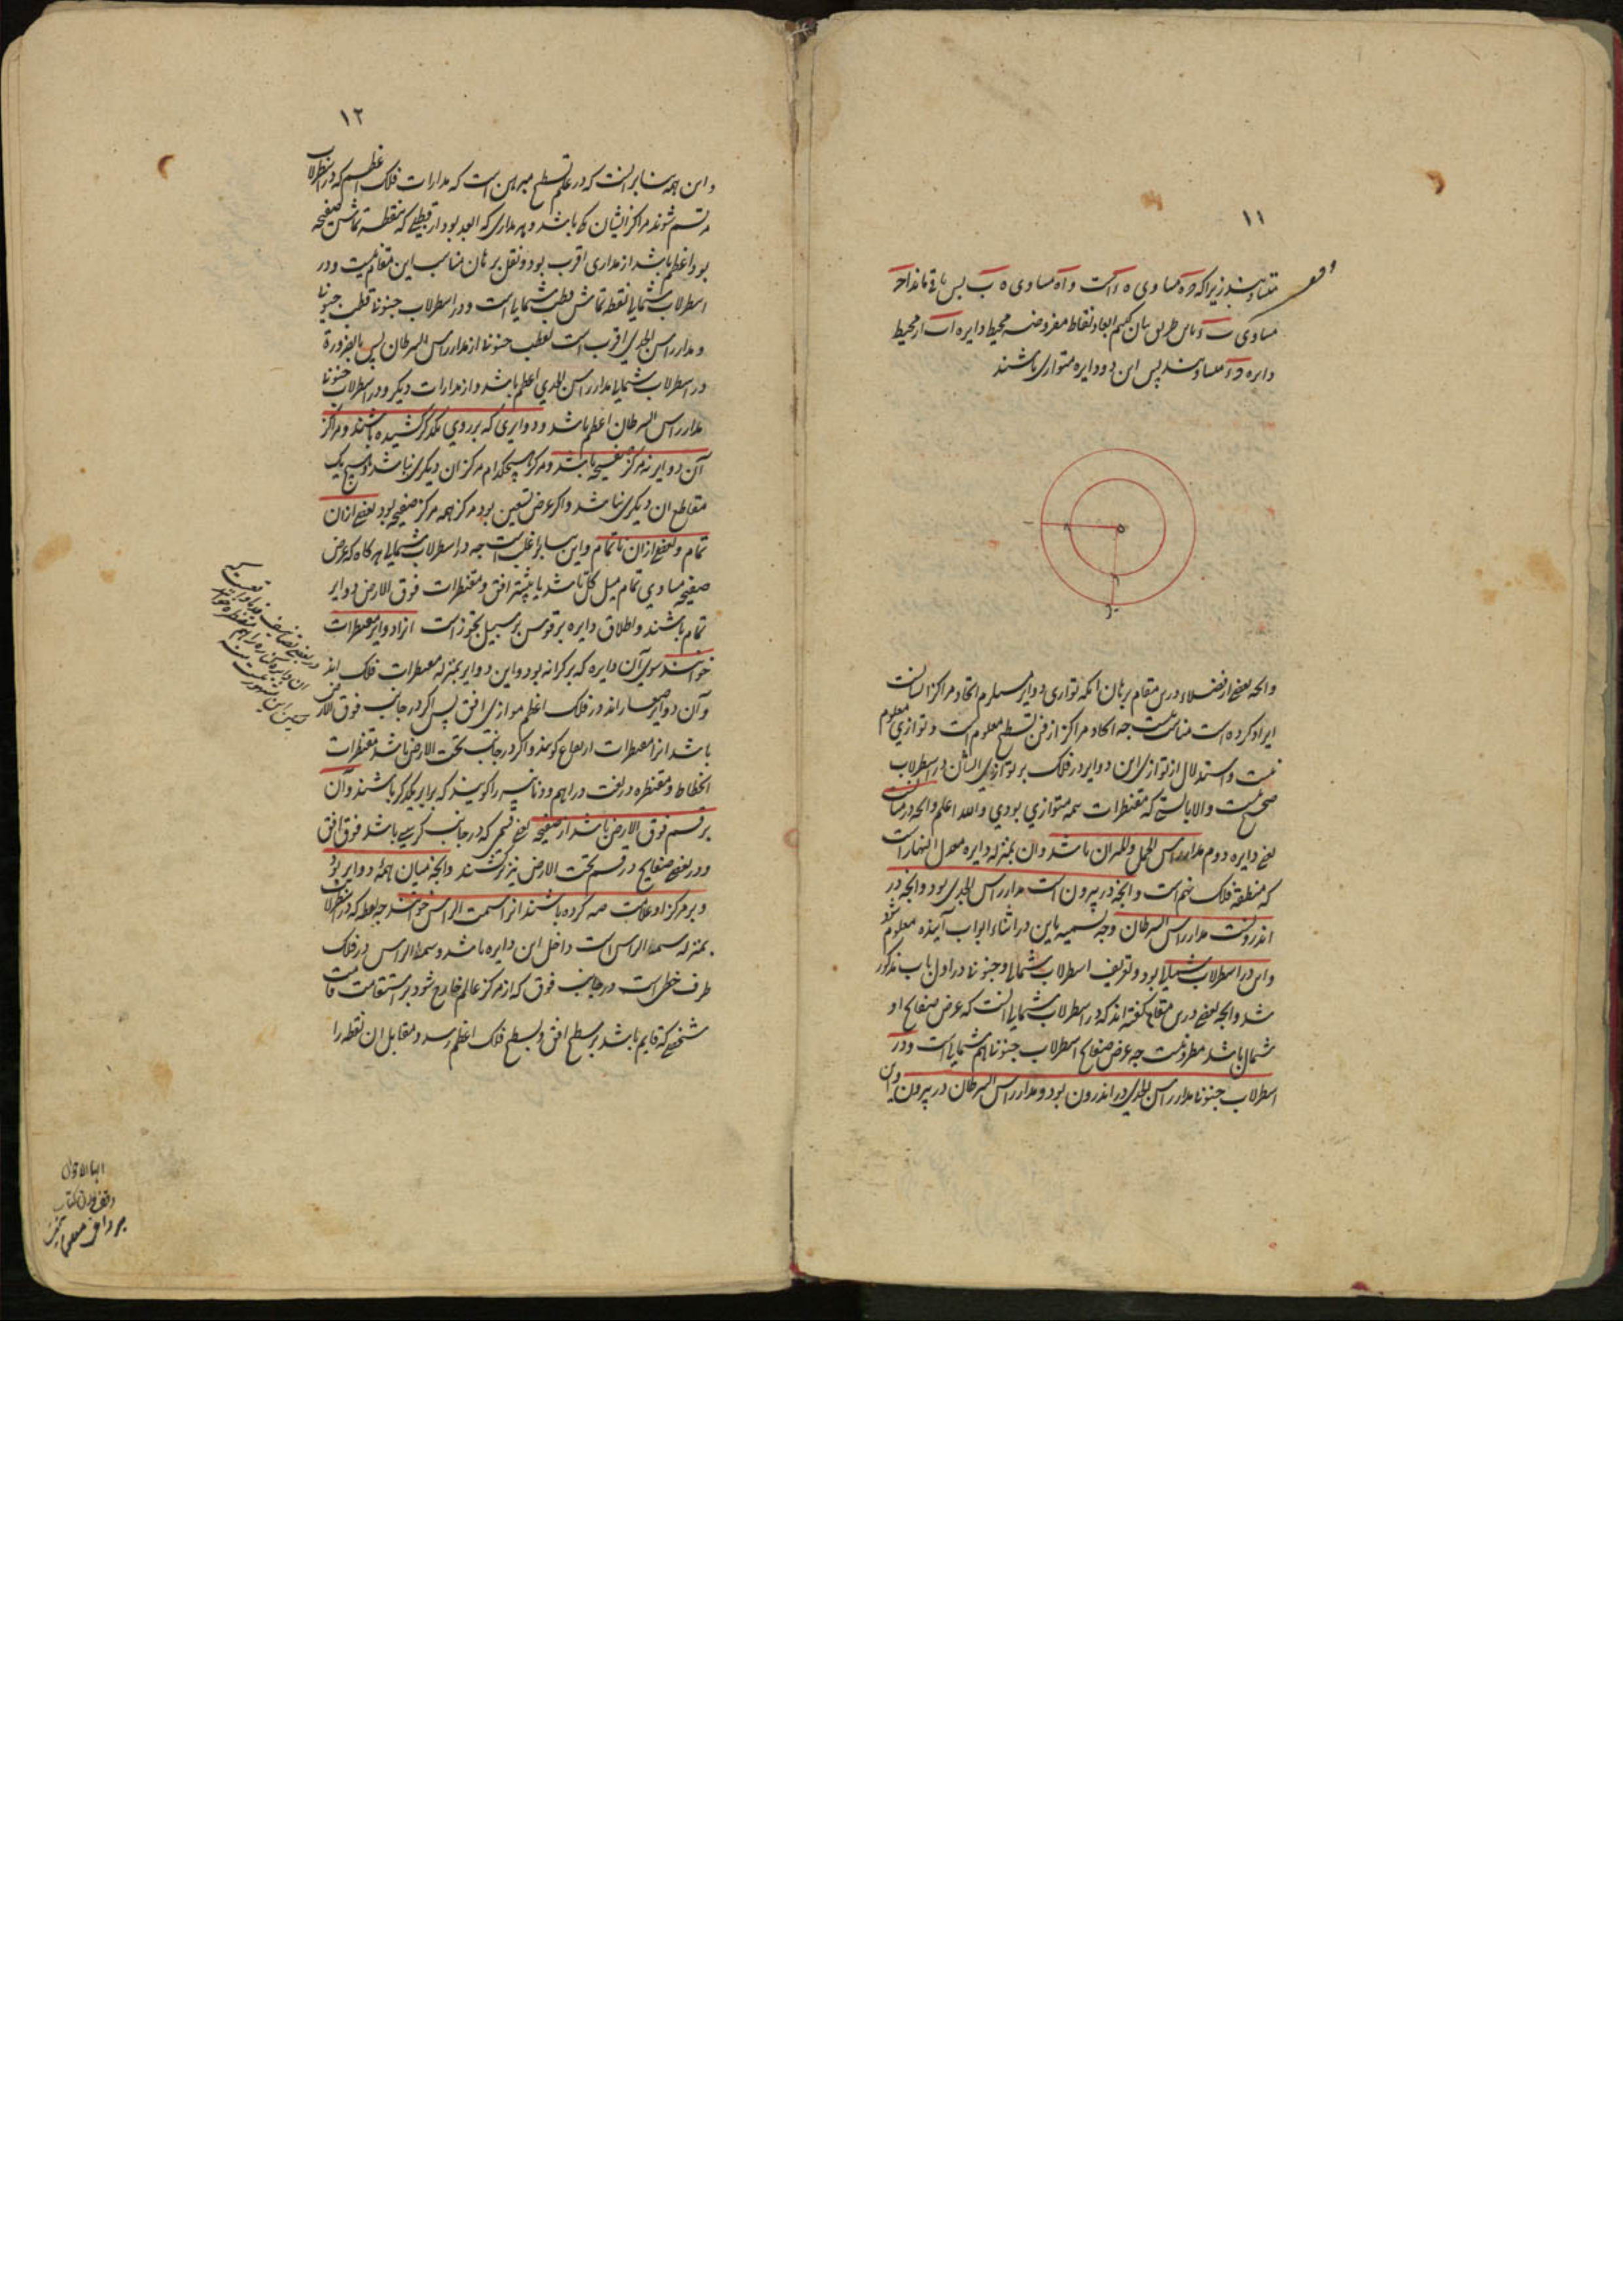 ۱۱
متساوی‌اند زیرا که ه مساوی ه است و اه مساوی ه ب پس باقی ماند اح
مساوی ب و باین طریق بیان کنیم ابعاد نقاط مفروضه محیط دایره اب از محیط
دایره متساویند پس این دو دایره متوازی باشند
وانچه بعضی از فضلاء درین مقام برهان انکه توازی دوایر مستلزم اتحاد مراکز ایشانست
ایراد کرده است مناسب نیست چه اتحاد مراکز از فن تسطیح معلوم است و توازی معلوم
نیست و استدلال از توازی این دوایر در فلک بر توازی ایشان در اسطرلاب
صحیح نیست والا بایستی که مقنطرات همه متوازی بودی والله اعلم وانچه در میانست
یعنی دایره دوم مدار راس الحمل والمیزان باشد وان بمنزله دایره معدل النهار است
که منطقه فلک نهم است وانچه در بیرون است مدار راس الجدی بود وانچه در
اندرونست مدار راس السرطان وجه تسمیه باین در اثناء ابواب آینده معلوم شود
واین در اسطرلاب شمالی بود وتعریف اسطرلاب شمالی وجنوبی در اول باب مذکور
شد وانچه بعضی درین مقام گفته اند که در اسطرلاب شمالی آنست که عرض صفایح او
شمالی باشد مطرد نیست چه عرض صفایح اسطرلاب جنوبی هم شمالی است ودر
اسطرلاب جنوبی مدار راس الجدی در اندرون بود ومدار راس السرطان در بیرون واین
۱۲
واین همه بنابر آنست که در علم تسطیح مبرهن است که مدارات فلک اعظم که در اسطرلاب
مرتسم شوند مراکز ایشان یکی باشد وهر مداری که ابعد بود از قطبی که نقطه تماس صفیحه
بود اعظم باشد از مداری اقرب بود ونقل برهان مناسب این مقام نیست ودر
اسطرلاب شمالی نقطه تماس قطب شمالی است ودر اسطرلاب جنوبی قطب جنوبی
ومدار راس الجدی اقرب است بقطب جنوبی از مدار راس السرطان پس بالضرورة
در اسطرلاب شمالی مدار راس الجدی اعظم باشد از مدارات دیگر ودر اسطرلاب جنوبی
مدار راس السرطان اعظم باشد ودوایری که بر روی یکدیگر کشیده باشند ومراکز
آن دوایر نه مرکز صفیحه باشد ومرکز هیچکدام مرکز ان دیگری نباشد وهیچ یک
مقاطع ان دیگری نباشد واگر عرض تسعین بود مرکز همه مرکز صفیحه بود بعضی ازان
تمام وبعضی ازان ناتمام واین بنابر اغلب است چه در اسطرلاب شمالی هرگاه که عرض
صفیحه مساوی تمام میل کلی باشد یا بیشتر افق ومقنطرات فوق الارض دوایر
تمام باشند واطلاق دایره بر قوس بر سبیل تجوز است انرا دوایر مقنطرات
خوانند سوی آن دایره که بر کرانه بود واین دوایر بمنزله مقنطرات فلک اند
وآن دوایر صغار اند در فلک اعظم موازی افق پس اگر در جانب فوق الارض
باشد انرا مقنطرات ارتفاع گویند واگر در جانب تحت الارض باشد مقنطرات
انحطاط ومقنطره در لغت دراهم ودنانیر را گویند که برابر یکدیگر باشند وآن
بر قسم فوق الارض باشد از صفیحه یعنی قسمی که در جانب کرسی باشد فوق افق
ودر بعضی صفایح در قسم تحت الارض نیز نویسند وانچه میان همهٔ دوایر بود
وبر مرکز او علامت صه کرده باشند انرا سمت الراس خوانند چه نقطه که در اسطرلاب
بمنزله سمت الراس است داخل این دایره باشد وسمت الراس در فلک
طرف خطی است در جانب فوق که از مرکز عالم خارج شود بر استقامت قامت
شخصی که قایم باشد بر سطح افق وبسطح فلک اعظم رسد ومقابل ان نقطه را